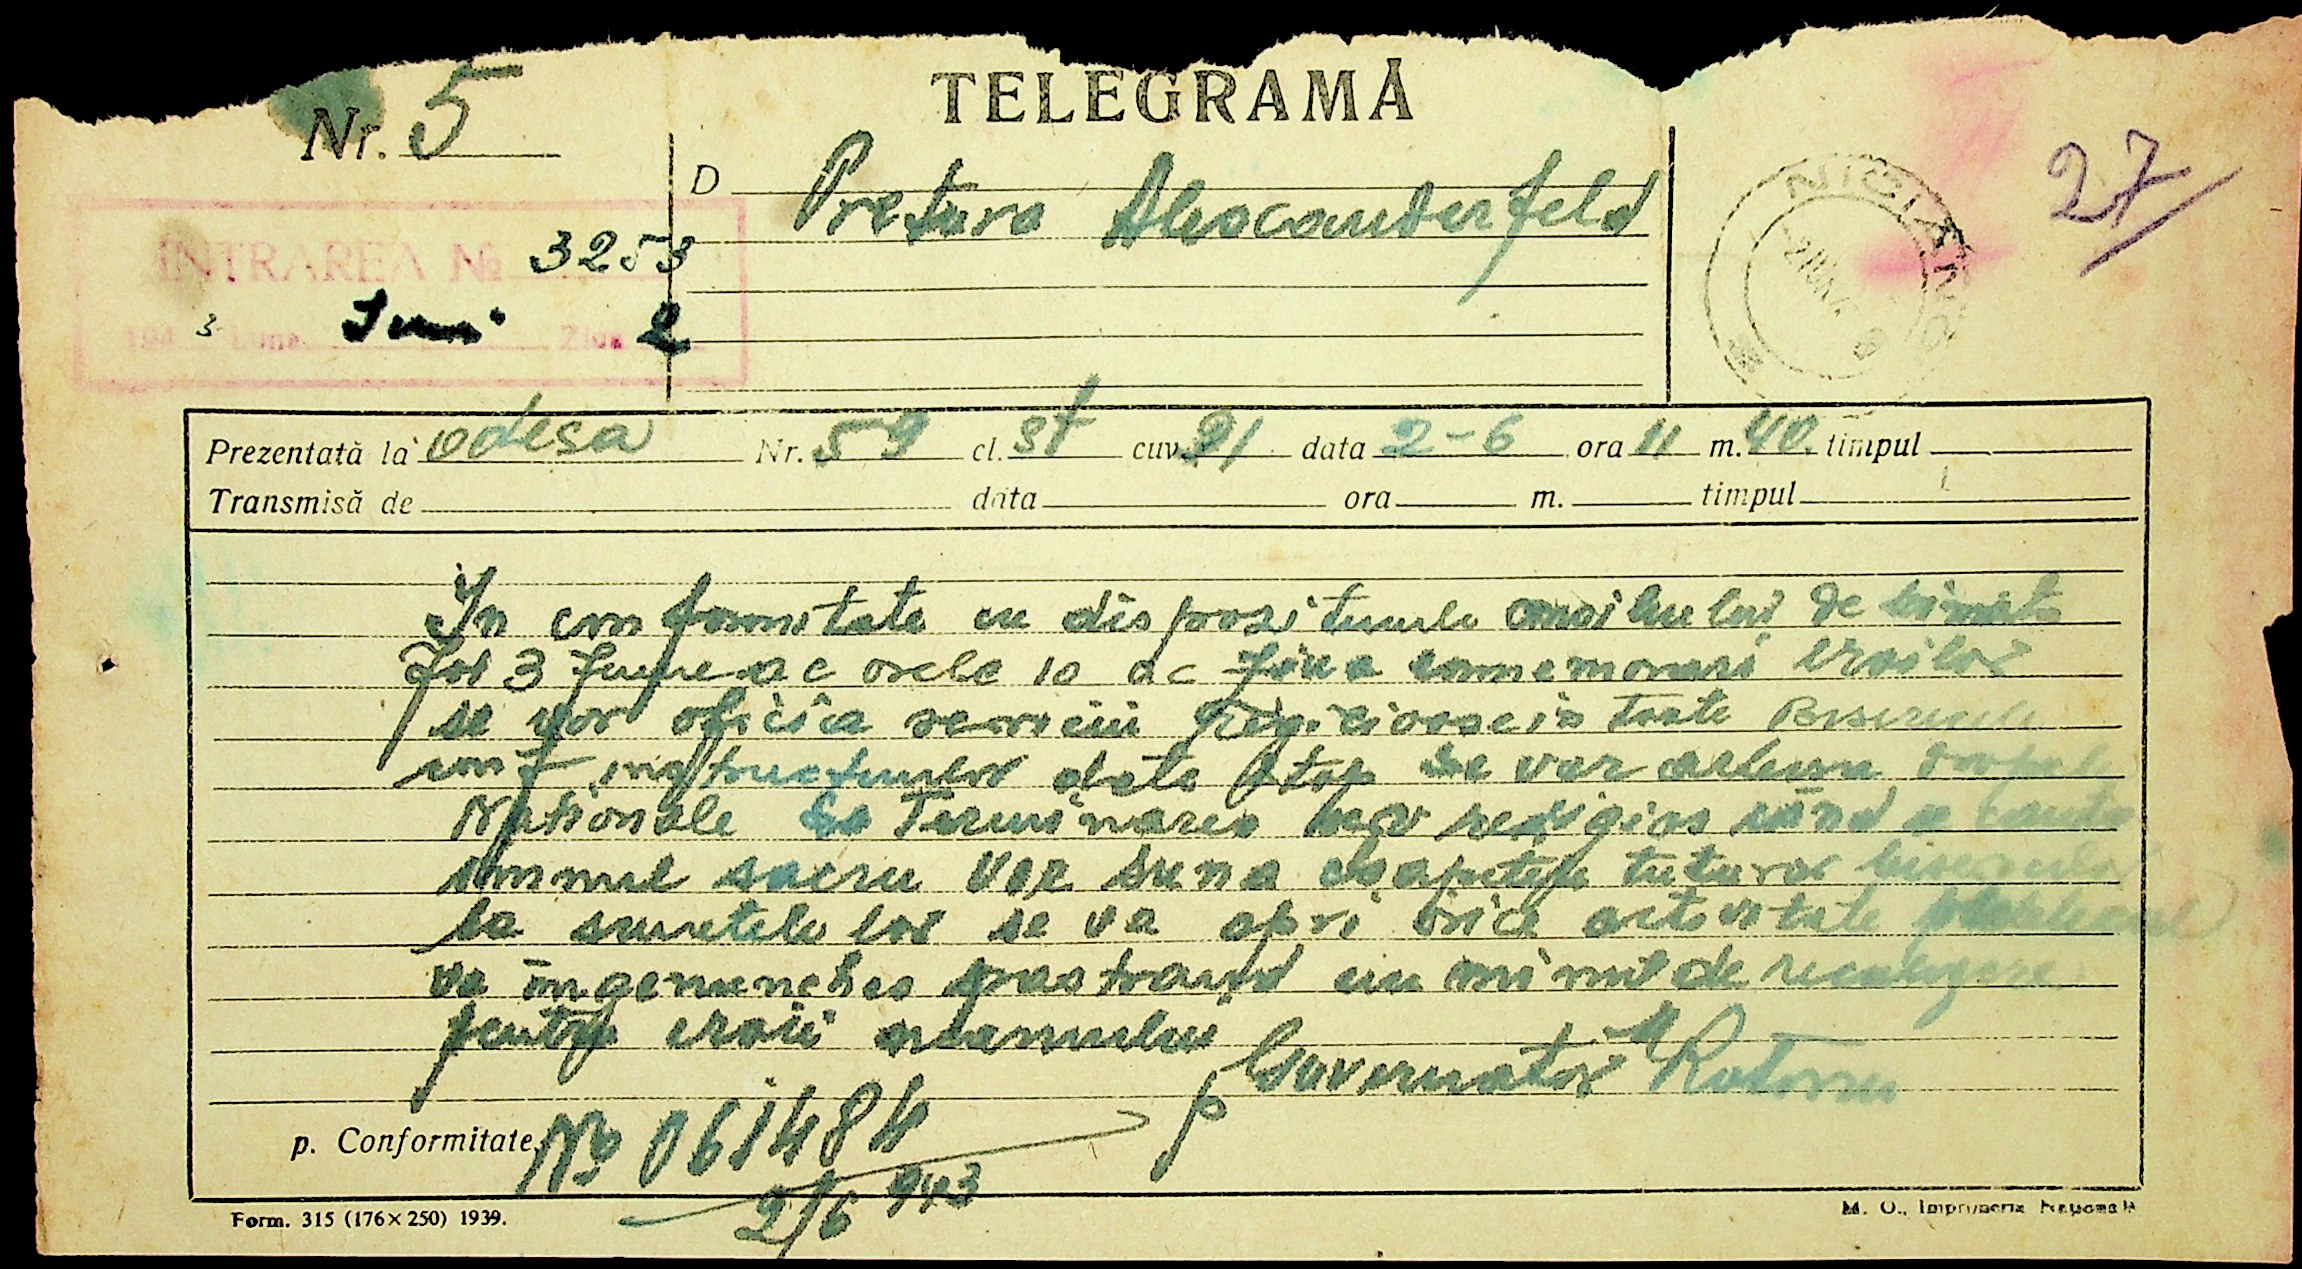 TELEGRAMĂ
Nr. 5
27
D Pretura Alexcanderfeld
INTRAREA № 3253
194 3 Luna Iuni Ziua 2
Prezentată la odesa Nr. 59 cl. st cuv. 91 data 2-6 ora 11 m. 40. timpul
Transmisă de data ora m. timpul
In conformitate cu dispozitiunile consiliului de
Joi 3 Iunie a c orele 10 ac ziua comemorari eroilor
se vor oficia servicii religioase in toate Bisericile
conf instructiunilor date Stop Se vor arbora
Nationale La Terminarea religios când
imnul sacru vor suna clopotele tuturor
La sunetele lor se va opri orice activitate
va ingenunchea pastrand un minut de reculegere
pentru eroii neamului
p Guvernator
p. Conformitate, № 061484
2/6 943
Form. 315 (176×250) 1939.
M. O., Imprimeria Națională